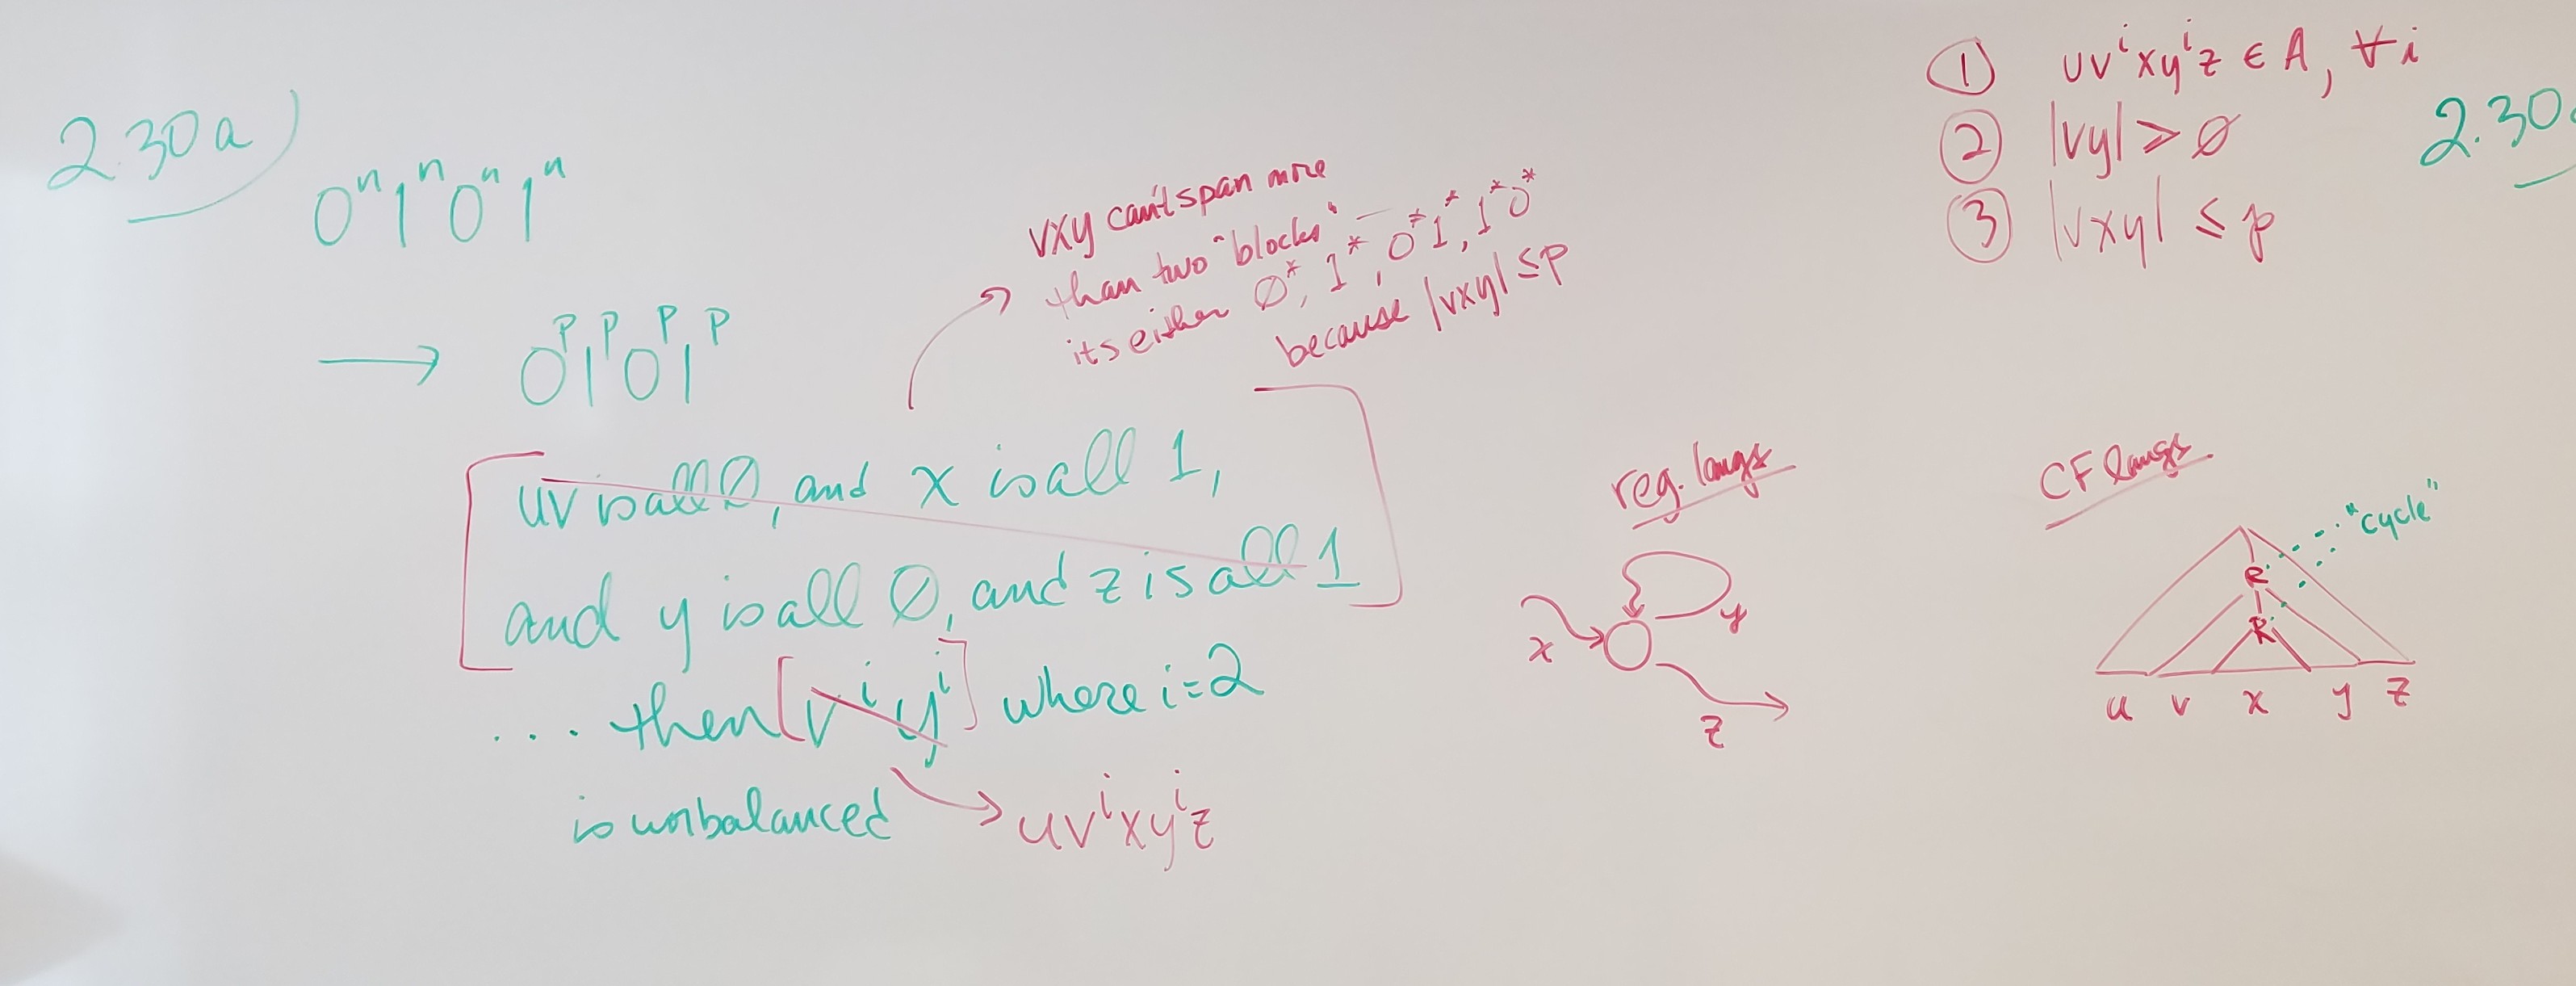 2.30a)
0ⁿ1ⁿ0ⁿ1ⁿ
→ 0ᵖ1ᵖ0ᵖ1ᵖ
vxy can't span more
than two "blocks" –
its either ∅*, 1*, 0*1*, 1*0*
because |vxy| ≤ p
uv is all ∅, and x is all 1,
and y is all ∅, and z is all 1
.... then [vⁱyⁱ] where i=2
is unbalanced → uvⁱxyⁱz
① uvⁱxyⁱz ∈ A, ∀i
② |vy| > ∅
③ |vxy| ≤ p
2.30
reg. langs
x
y
z
CF langs
"cycle"
R
R
u v x y z